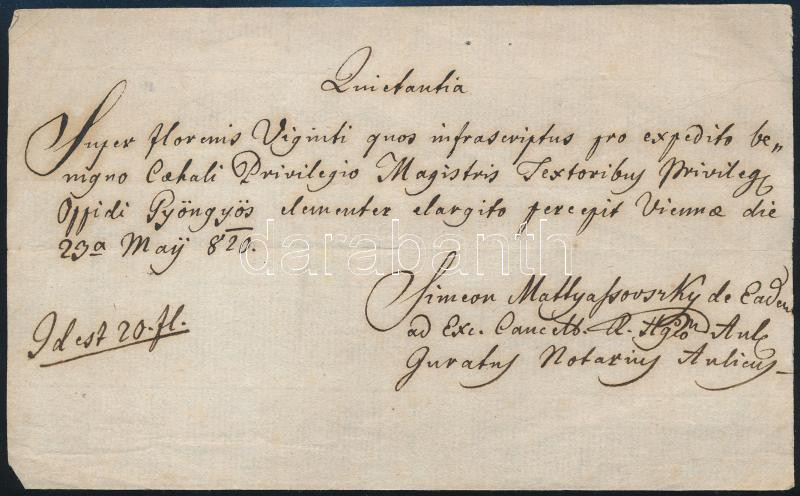 Quietantia
Super florenis Viginti quos infrascriptus pro expedito be„
nigno Cæhali Privilegio Magistris Textoribus Privileg
Oppidi Gyöngyös clementer elargito percepit Viennæ die
23a Maÿ 820.
Simeon Mattyassovszky de Eadem
Id est 20. fl.
ad Exc. Cancell. R. Aul
Juratus Notarius Aulicus
darabanth